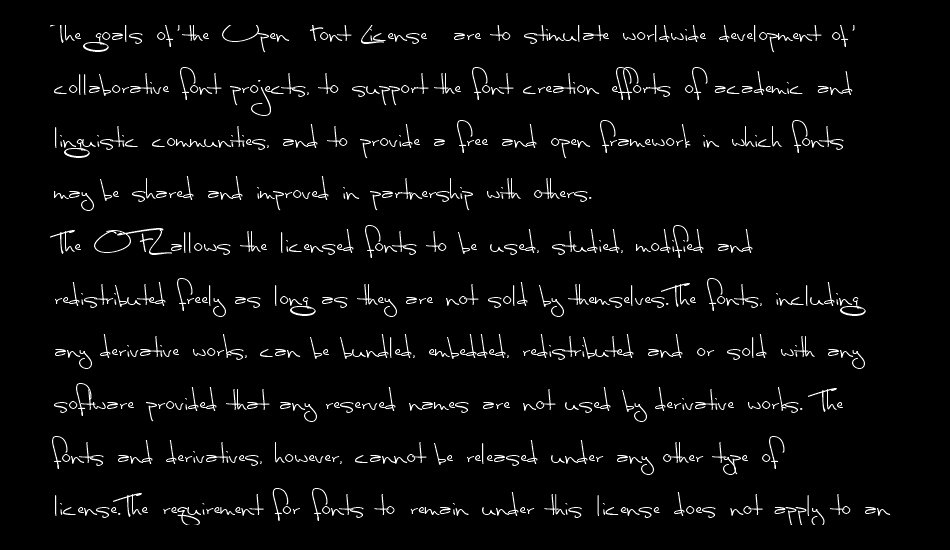 The goals of the Open Font License are to stimulate worldwide development of
collaborative font projects, to support the font creation efforts of academic and
linguistic communities, and to provide a free and open framework in which fonts
may be shared and improved in partnership with others.
The OFL allows the licensed fonts to be used, studied, modified and
redistributed freely as long as they are not sold by themselves.The fonts, including
any derivative works, can be bundled, embedded, redistributed and or sold with any
software provided that any reserved names are not used by derivative works. The
fonts and derivatives, however, cannot be released under any other type of
license.The requirement for fonts to remain under this license does not apply to an